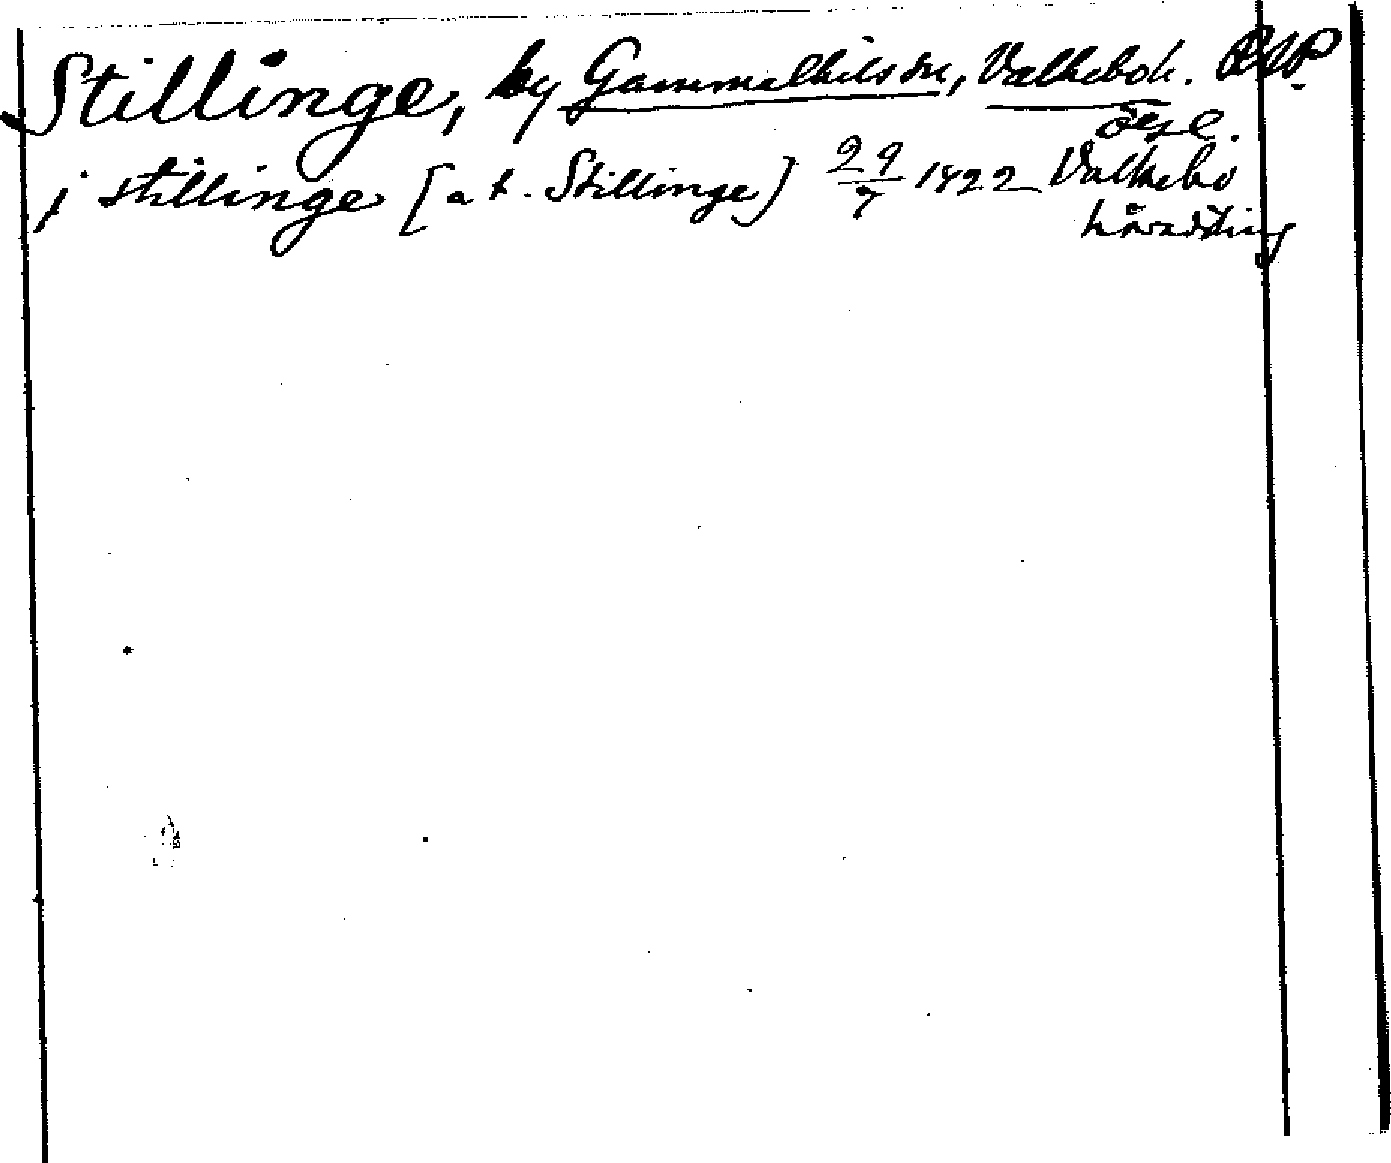 Stillinge, by Gammalkils sn, Valkeboh. RAP
Ögl.
i stillinge [a t. Stillinge] 29/7 1422 Valkebo
häradsting